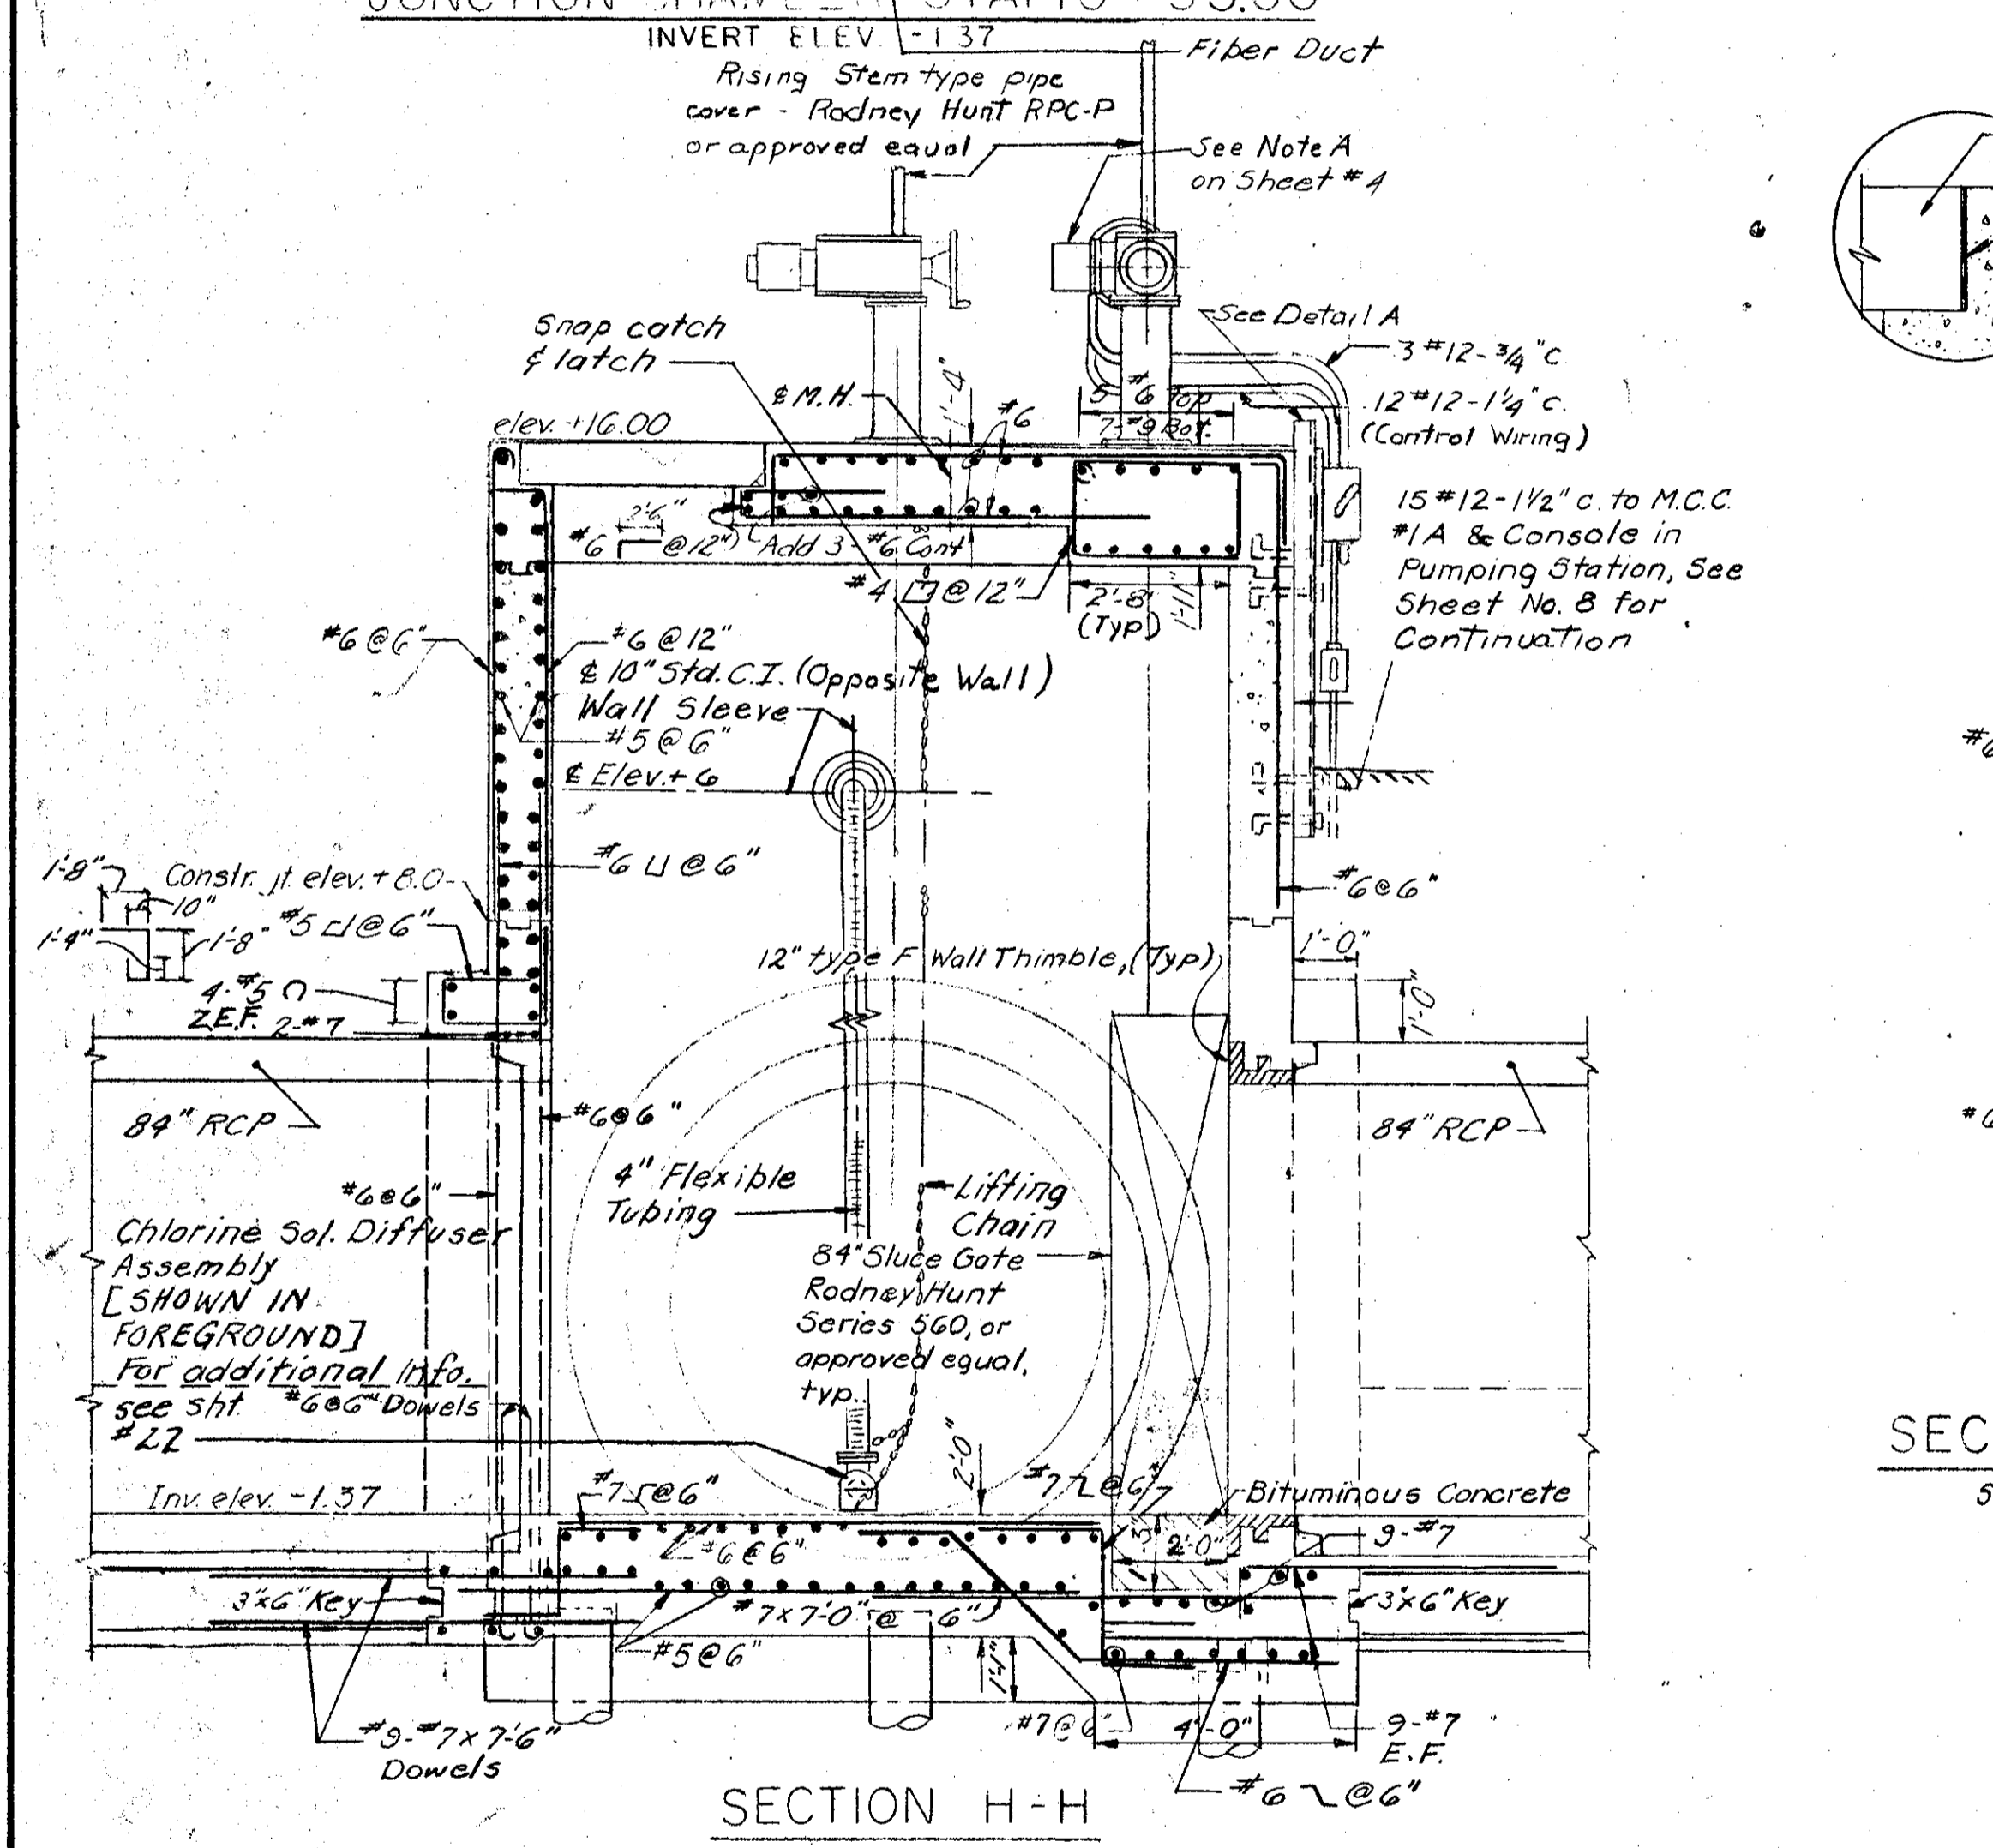 JUNCTION CHAMBER
INVERT ELEV. -1.37
Fiber Duct
Rising Stem type pipe
cover - Rodney Hunt RPC-P
or approved equal
See Note A
on Sheet #4
Snap catch
& latch
See Detail A
3 #12-3/4" C
12 #12-1 1/4" c.
(Control Wiring)
℄ M.H.
1'-4"
#6
5-#6 Top
7-#9 Bot.
elev. +16.00
15 #12-1 1/2" c. to M.C.C.
#1A & Console in
Pumping Station, See
Sheet No. 8 for
Continuation
2'-6"
#6 @ 12"
Add 3-#6 Cont
#4 @ 12"
2'-8"
(Typ)
1'-11"
#6 @ 6"
#6 @ 12"
℄ 10" Std. C.I. (Opposite Wall)
Wall Sleeve
#5 @ 6"
℄ Elev. + 6
#6 @ 6"
1'-8"
Constr. jt. elev. + 8.0
10"
#5 @ 6"
1'-4"
1'-8"
#6 @ 6"
12" type F Wall Thimble, (Typ)
1'-0"
1'-0"
4-#5
2 E.F.
2-#7
84" RCP
#6 @ 6"
84" RCP
4" Flexible
Tubing
Lifting
Chain
#6 @ 6"
Chlorine Sol. Diffuser
Assembly
[SHOWN IN
FOREGROUND]
For additional Info.
see sht.
#22
84" Sluce Gate
Rodney Hunt
Series 560, or
approved equal,
typ.
#6 @ 6" Dowels
2'-0"
Inv. elev. -1.37
#7 @ 6"
#7 @ 6"
Bituminous Concrete
#6 @ 6"
1'-3"
2'-0"
9-#7
3"x6" Key
#7 x 7'-0" @ 6"
3"x6" Key
#5 @ 6"
1'-4"
#9-#7 x 7'-6"
Dowels
#7 @ 6"
4'-0"
9-#7
E.F.
#6 @ 6"
SECTION H-H
SEC